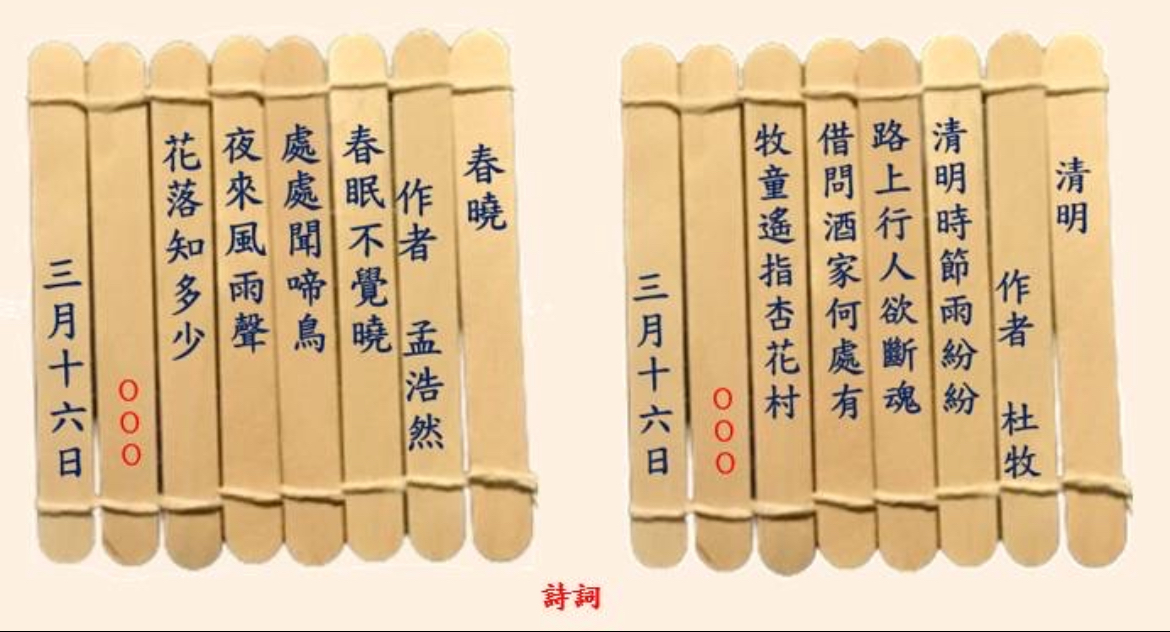 春曉
作者 孟浩然
春眠不覺曉
處處聞啼鳥
夜來風雨聲
花落知多少
OOO
三月十六日
清明
作者 杜牧
清明時節雨紛紛
路上行人欲斷魂
借問酒家何處有
牧童遙指杏花村
OOO
三月十六日
詩詞